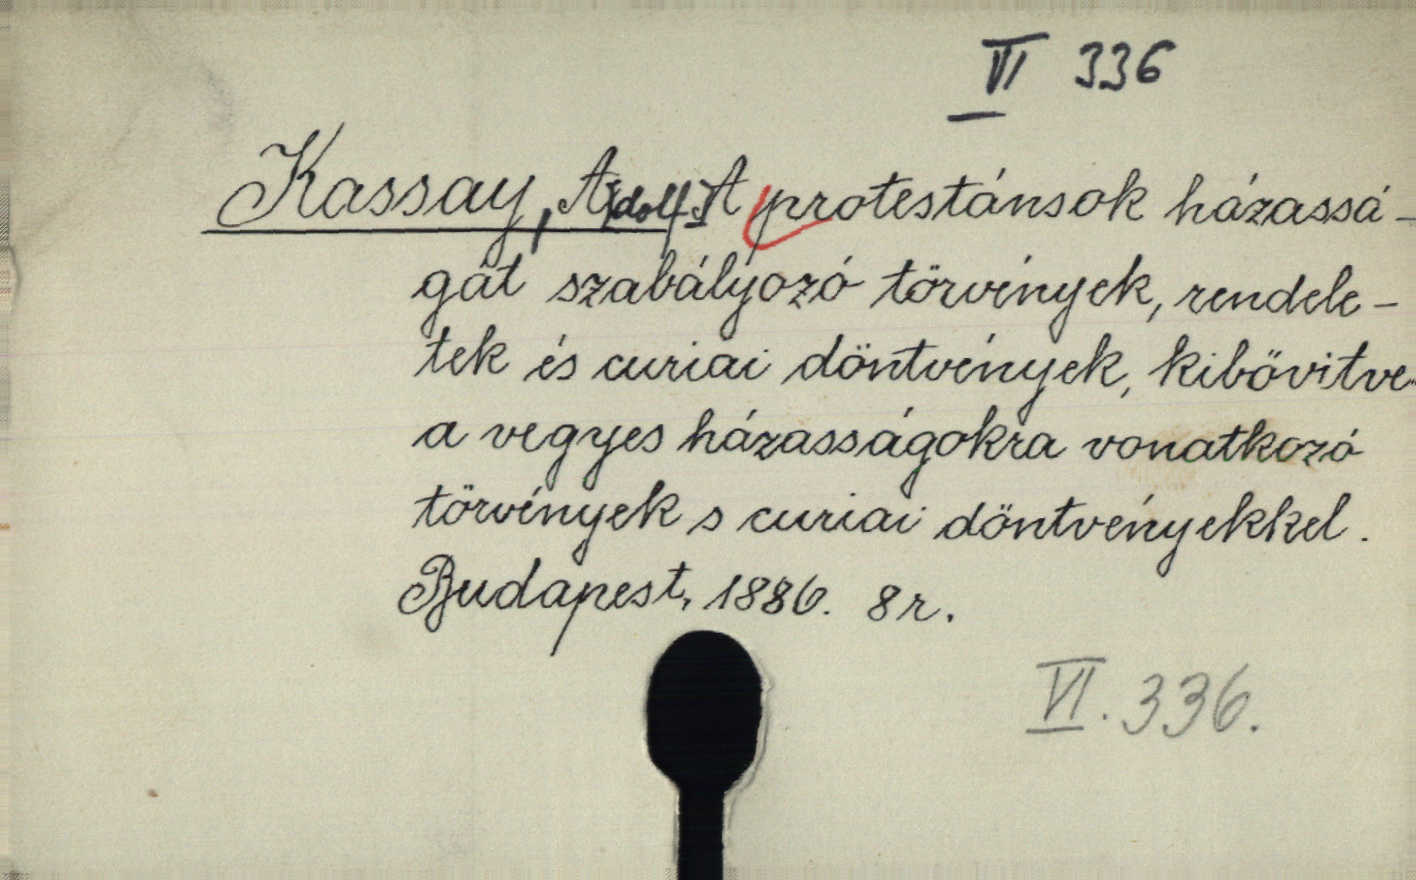 VI 336
Kassay, Adolf. A protestánsok házassá-
gát szabályozó törvények, rendele-
tek és curiai döntvények, kibővitve
a vegyes házasságokra vonatkozó
törvények s curiai döntvényekkel.
Budapest, 1886. 8r.
VI. 336.